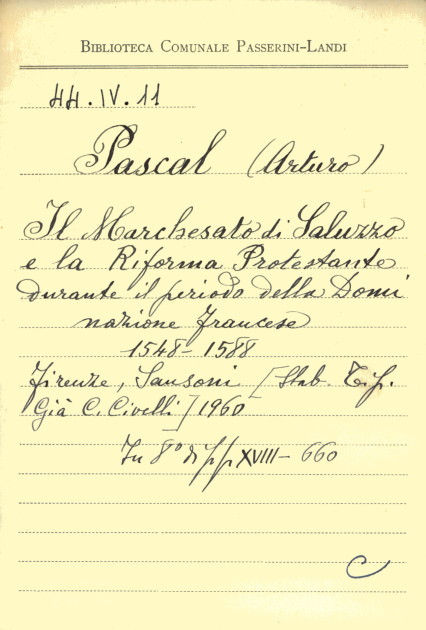 BIBLIOTECA COMUNALE PASSERINI-LANDI
44.IV.11
Pascal (Arturo)
Il Marchesato di Saluzzo
e la Riforma Protestante
durante il periodo della Domi
nazione Francese
1548-1588
Firenze, Sansoni [Stab. Tip.
Già C. Civelli] 1960
In 8° di pp. XVIII-660
C